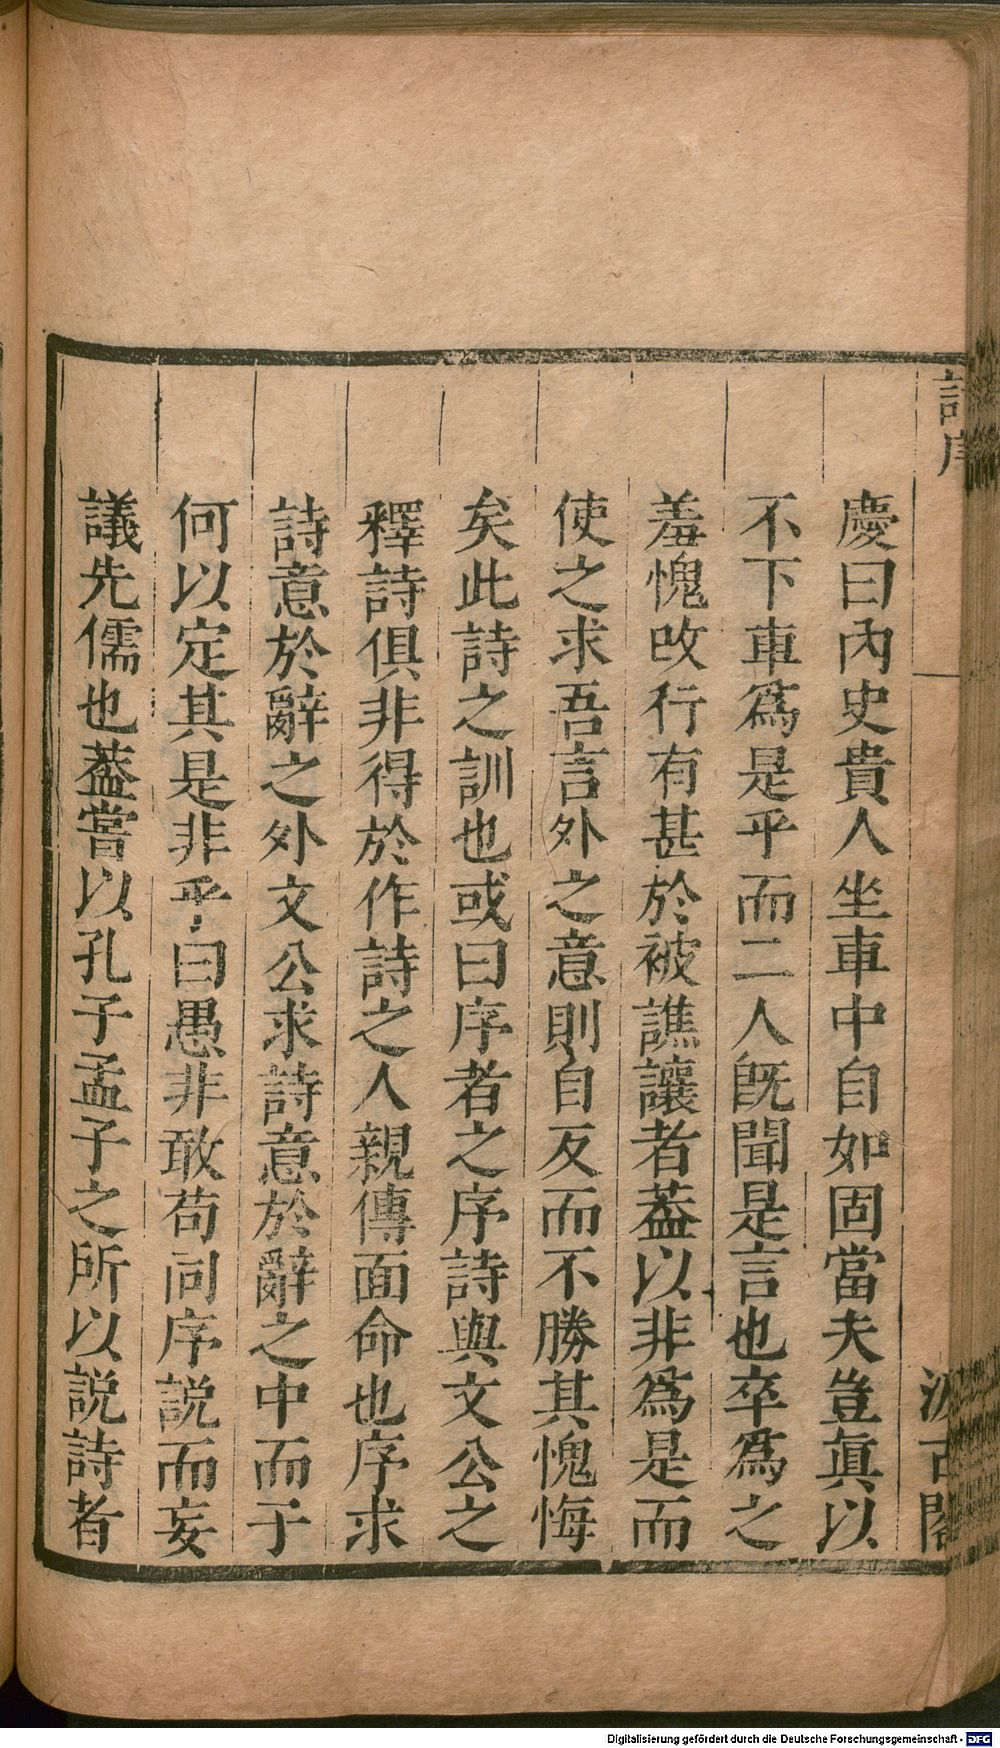 詩序
汲古閣
慶曰內史貴人坐車中自如固當夫豈眞以
不下車爲是乎而二人旣聞是言也卒爲之
羞愧改行有甚於被譙讓者葢以非爲是而
使之求吾言外之意則自反而不勝其愧悔
矣此詩之訓也或曰序者之序詩與文公之
釋詩俱非得於作詩之人親傳面命也序求
詩意於辭之外文公求詩意於辭之中而子
何以定其是非乎曰愚非敢苟同序説而妄
議先儒也葢嘗以孔子孟子之所以説詩者
Digitalisierung gefördert durch die Deutsche Forschungsgemeinschaft - DFG